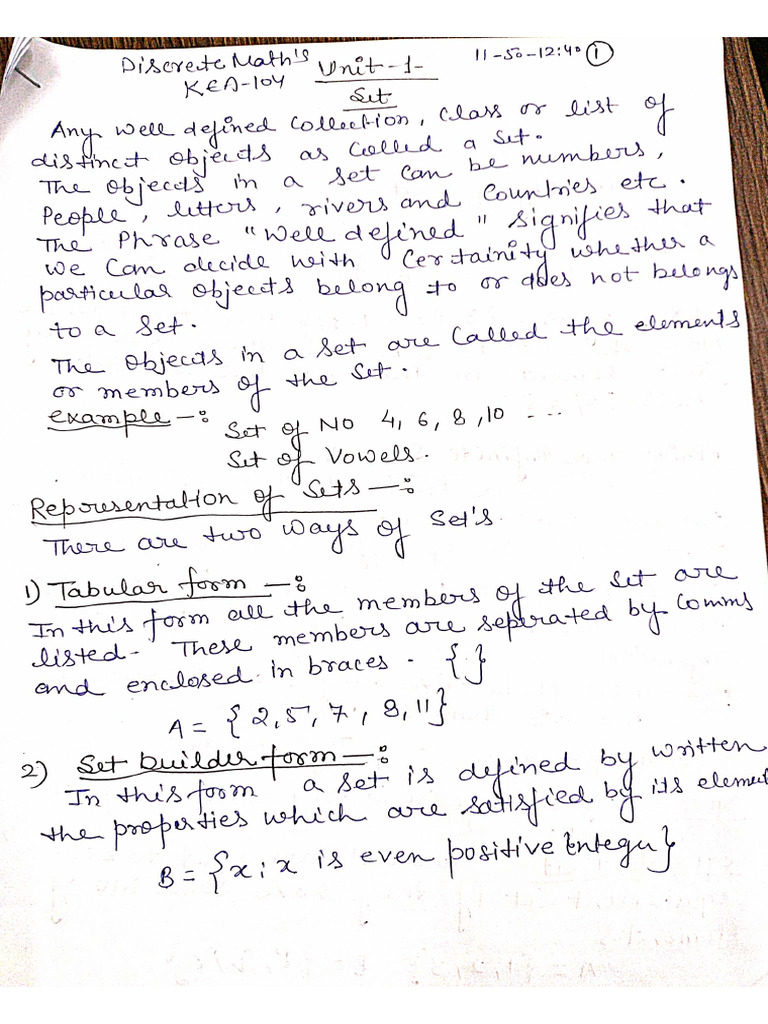 Discrete Math's Unit-1- 11-50-12:40 1
KCA-104
Set
Any well defined Collection, Class or list of
distinct objects as Called a Set.
The objects in a set can be numbers,
People, letters, rivers and Countries etc.
The Phrase "Well defined" signifies that
we Can decide with Certainity whether a
particular objects belong to or does not belongs
to a Set.
The objects in a set are Called the elements
or members of the Set.
example -: Set of NO 4, 6, 8, 10 ...
Set of Vowels.
Representation of Sets -:
There are two ways of Set's
1) Tabular form -:
In this form all the members of the set are
listed- These members are seperated by Comms
and enclosed in braces. { }
A = {2, 5, 7, 8, 11}
2) Set builder form -:
In this form a set is defined by written
the properties which are satisfied by its element
B = {x : x is even positive Integer}